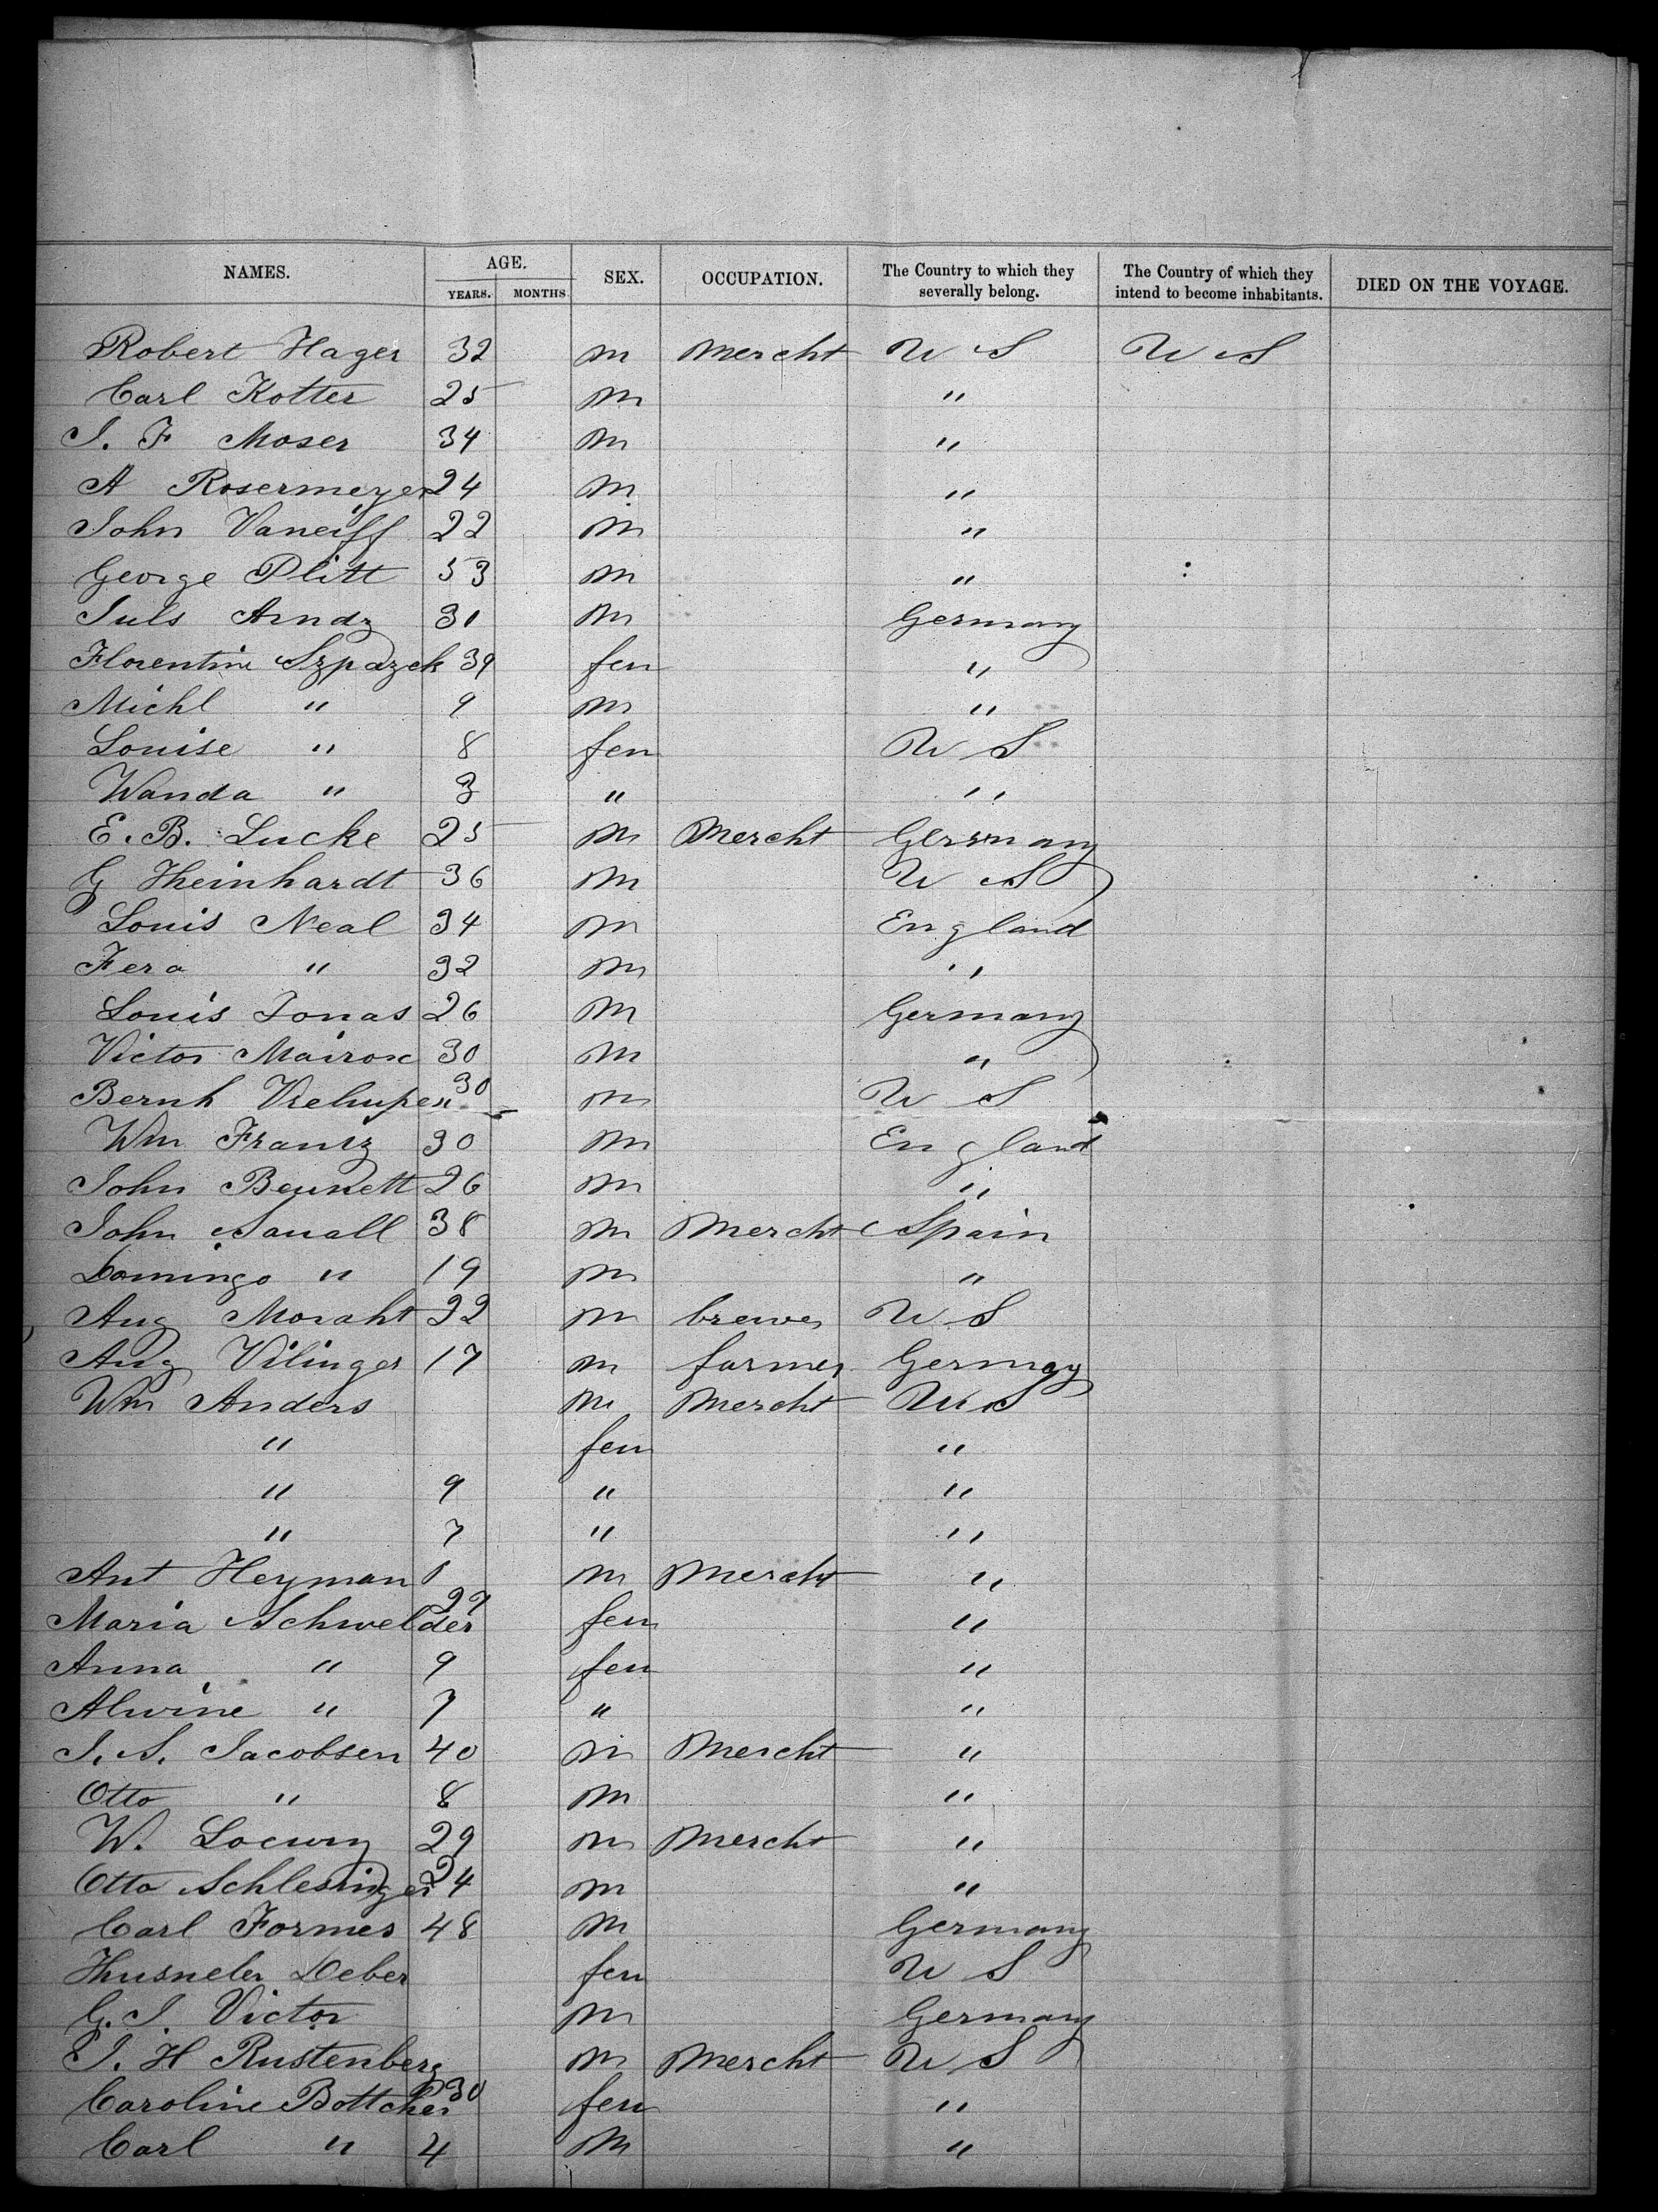 NAMES. AGE. SEX. OCCUPATION. The Country to which they severally belong. The Country of which they intend to become inhabitants. DIED ON THE VOYAGE.
YEARS. MONTHS
Robert Hager 32 m Mercht U S U S
Carl Kotter 25 m "
J. F Moser 34 m "
A Rosermeyer 24 m "
John Vaneiff 22 m "
George Plitt 53 m "
Juls Arndz 31 m Germany
Florentine Szpazek 39 fem "
Michl " 9 m "
Louise " 8 fem U S
Wanda " 3 " "
E. B. Lucke 25 m Mercht Germany
G Theinhardt 36 m U S
Louis Neal 34 m England
Fera " 32 m "
Louis Jonas 26 m Germany
Victor Mairox 30 m "
Bernh 30 m U S
Wm Frantz 30 m England
John Bennett 26 m "
John Sauall 38 m Mercht Spain
Domingo " 19 m "
Aug Moraht 32 m brewer U S
Aug Vilinger 17 m farmer Germay
Wm Anders m Mercht U S
" fem "
" 9 " "
" 7 " "
Ant Heyman m Mercht "
Maria Schwelder 29 fem "
Anna " 9 fem "
Alwine " 7 " "
J. S. Jacobsen 40 m Mercht "
Otto " 8 m "
W. Loewy 29 m Mercht "
Otto Schlesinger 24 m "
Carl Formes 48 m Germany
Deber fem U S
G. J. Victor m Germany
J. H Rustenberg m Mercht U S
Caroline Bottcher 30 fem "
Carl " 4 m "